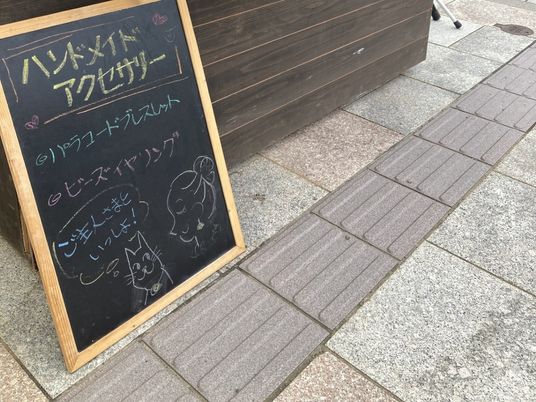 ハンドメイド
アクセサリー
◎パラコードブレスレット
◎ビーズイヤリング
ご主人さまと
いっしょ!